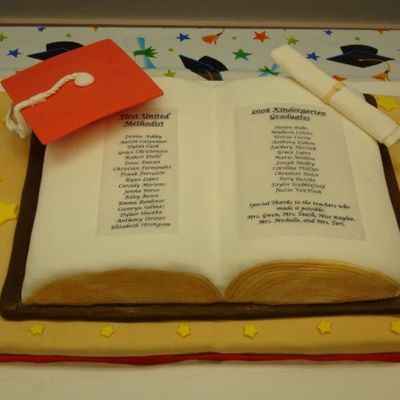 First United
Methodist
Denna Ashby
Austin Carpenter
Dylan Cash
Grace Christensen
Robert Diehl
Isaac Duran
Christian Fernandez
Frank Ferrante
Ryan Lopez
Cassidy Mertens
Jenna Perez
Riley Reiva
Emma Renhster
Lauryn Salinas
Dylan Sluzka
Anthony Steiner
Elizabeth Strongson
2008 Kindergarten
Graduates
Madison Colosi
Tristan Currie
Anthony
Zachary
Grace Lopez
Marie Medina
Joseph Melley
Caroline Phillips
Christian Rossa
Rory Ruszka
Taylor Stubblefield
Justin
Special Thanks to the teachers who
made it possible.
Mrs. Gwen, Mrs. Trash, Miss Kaylee,
Mrs. Michelle, and Mrs. Teri.